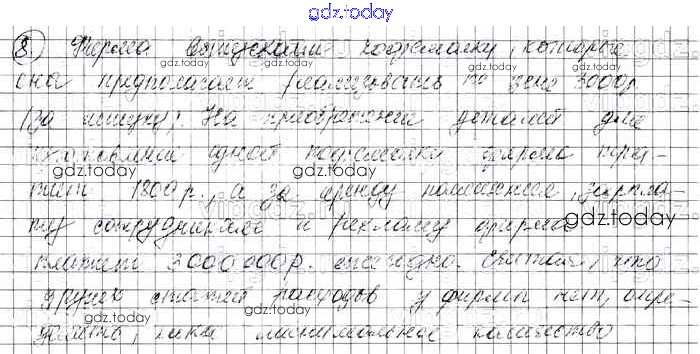 gdz.today
8. Фирма выпускает кофемолку, которые
она предполагает реализовать по цене 3000 р.
(за штуку). На приобретение деталей для
изготовления одной кофемолки фирма тра-
тит 1800 р., а за аренду помещения, зарпла-
ту сотрудникам и рекламу фирма
платит 3000 000 р. ежегодно. Считая, что
других статей расходов у фирмы нет, опре-
делить, како минимальное количество